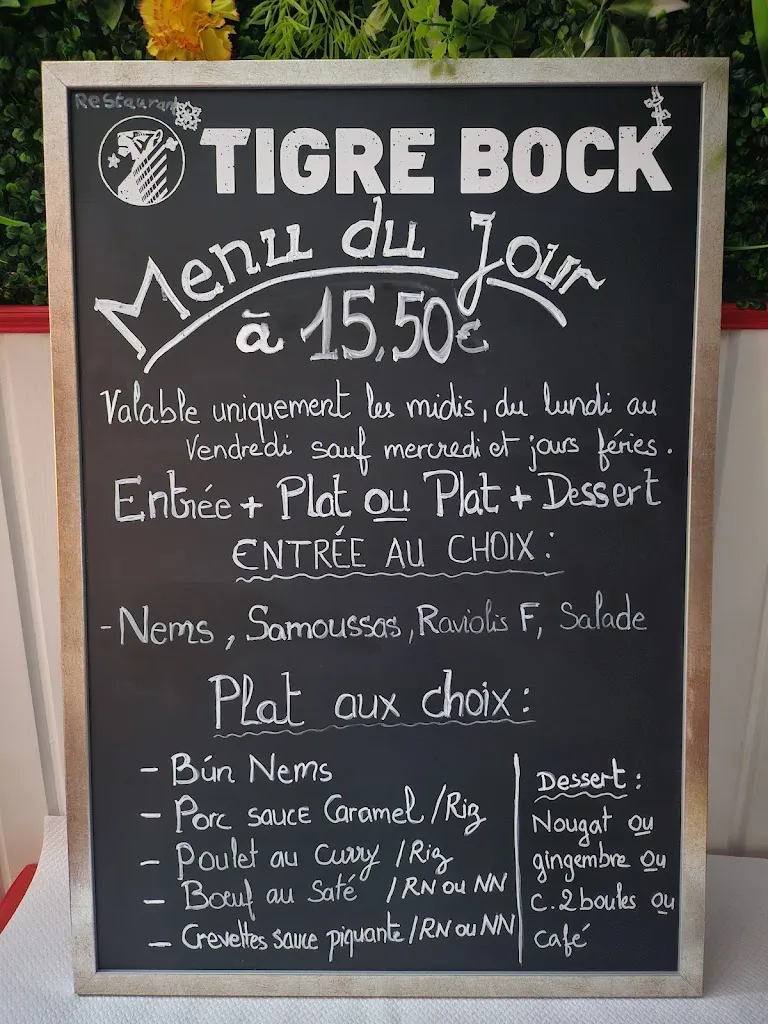 Restaurant
TIGRE BOCK
Menu du Jour
à 15,50€
Valable uniquement les midis, du lundi au
Vendredi sauf mercredi et jours féries.
Entrée + Plat ou Plat + Dessert
ENTRÉE AU CHOIX :
- Nems, Samoussas, Raviolis F, Salade
Plat aux choix :
- Bún Nems
- Porc sauce Caramel / Riz
- Poulet au Curry / Riz
- Bœuf au Saté / RN ou NN
- Crevettes sauce piquante / RN ou NN
Dessert :
Nougat ou
gingembre ou
C. 2 boules ou
Café